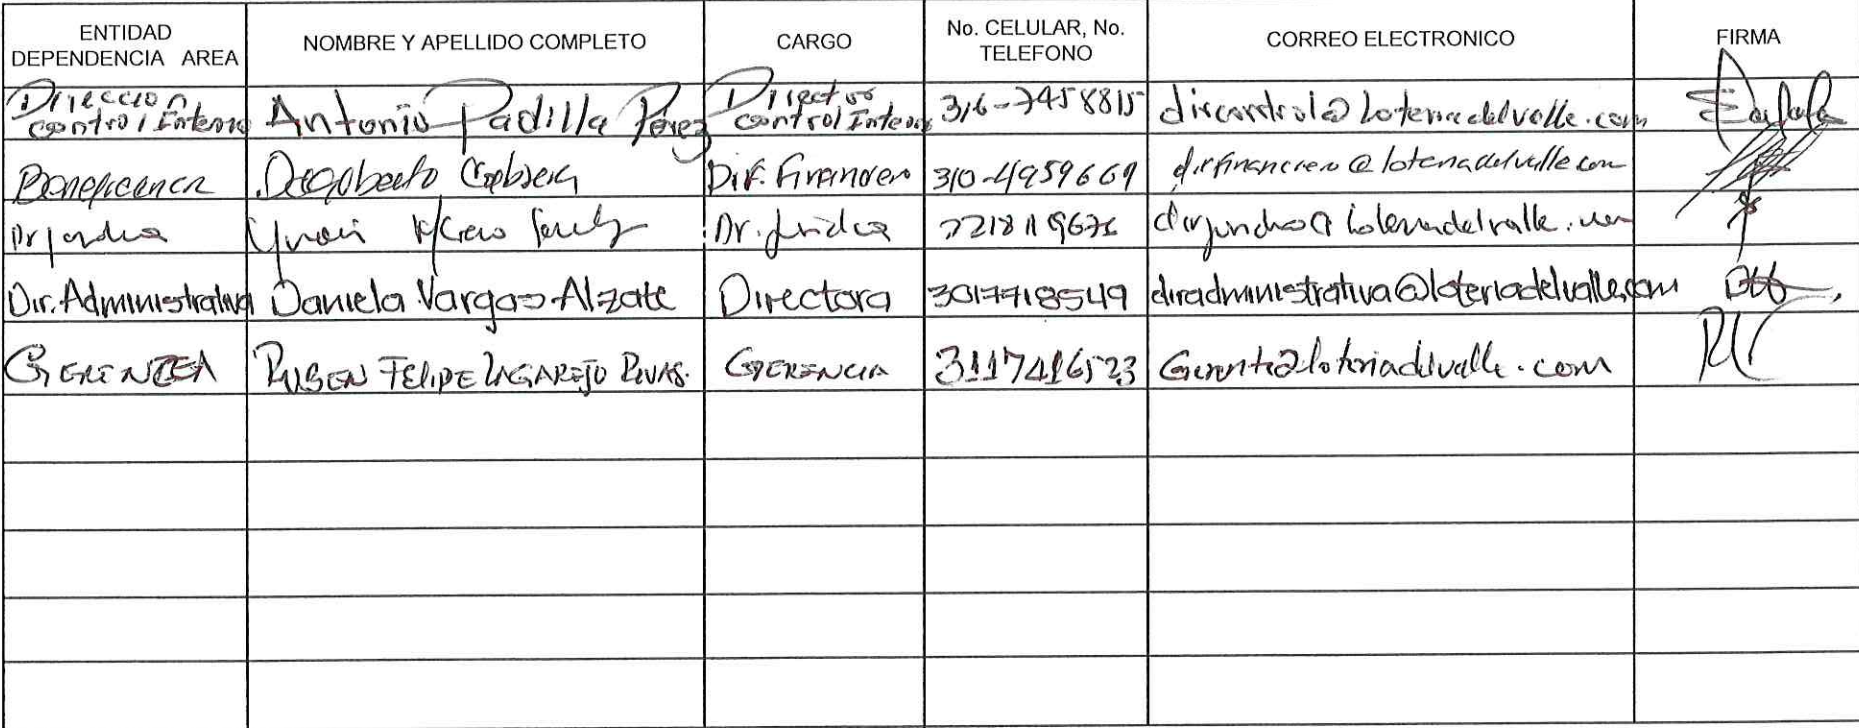 ENTIDAD
DEPENDENCIA AREA
NOMBRE Y APELLIDO COMPLETO
CARGO
No. CELULAR, No.
TELEFONO
CORREO ELECTRONICO
FIRMA
Direccion
control Interno
Antonio Padilla Perez
Director
control Interno
316-7458815
dircontrol@loteriadelvalle.com
Beneficencia
Dagoberto
Dir. Financiero
310-4959669
dirfinanciero@loteriadelvalle.com
Dir. Administrativa
Daniela Vargas Alzate
Directora
3017718549
diradministrativa@loteriadelvalle.com
GERENCIA
RUBEN FELIPE LAGAREJO RIVAS.
GERENCIA
3117416523
Gerente@loteriadelvalle.com